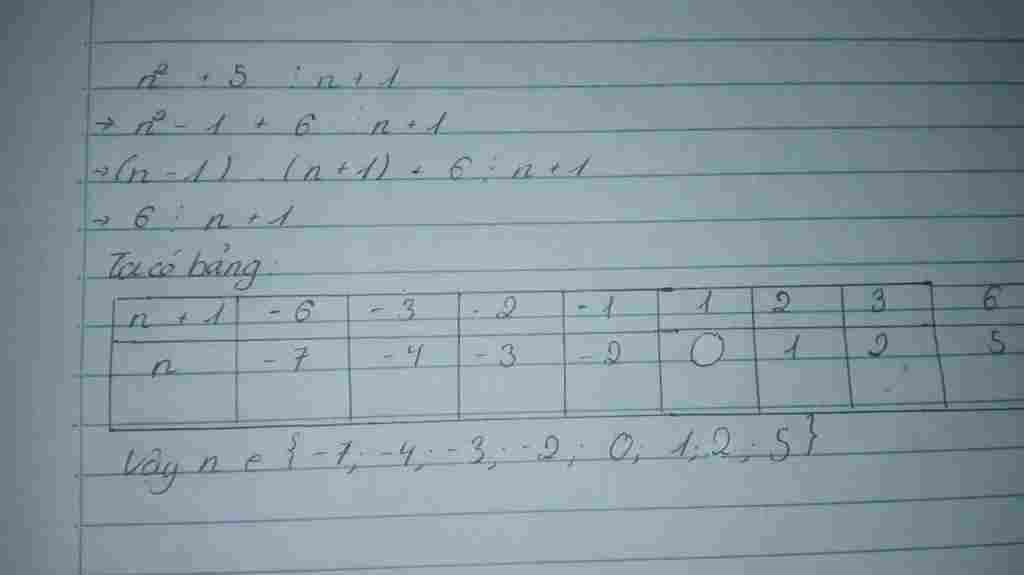 n² + 5 ⋮ n + 1
→ n² - 1 + 6 ⋮ n + 1
→ (n - 1) . (n + 1) + 6 ⋮ n + 1
→ 6 ⋮ n + 1
Ta có bảng:
n + 1 - 6 - 3 - 2 - 1 1 2 3 6
n - 7 - 4 - 3 - 2 0 1 2 5
Vậy n ∈ {-7; -4; -3; -2; 0; 1; 2; 5}